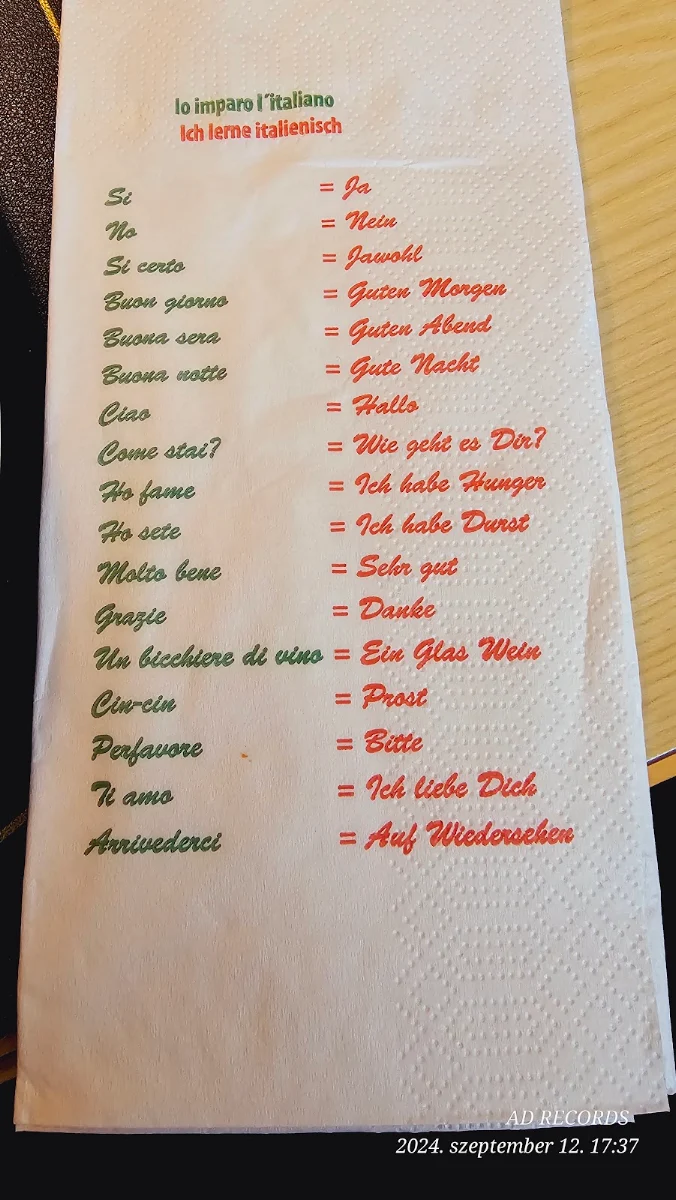 Io imparo l´italiano
Ich lerne italienisch
Si = Ja
No = Nein
Si certo = Jawohl
Buon giorno = Guten Morgen
Buona sera = Guten Abend
Buona notte = Gute Nacht
Ciao = Hallo
Come stai? = Wie geht es Dir?
Ho fame = Ich habe Hunger
Ho sete = Ich habe Durst
Molto bene = Sehr gut
Grazie = Danke
Un bicchiere di vino = Ein Glas Wein
Cin-cin = Prost
Perfavore = Bitte
Ti amo = Ich liebe Dich
Arrivederci = Auf Wiedersehen
AD RECORDS
2024. szeptember 12. 17:37